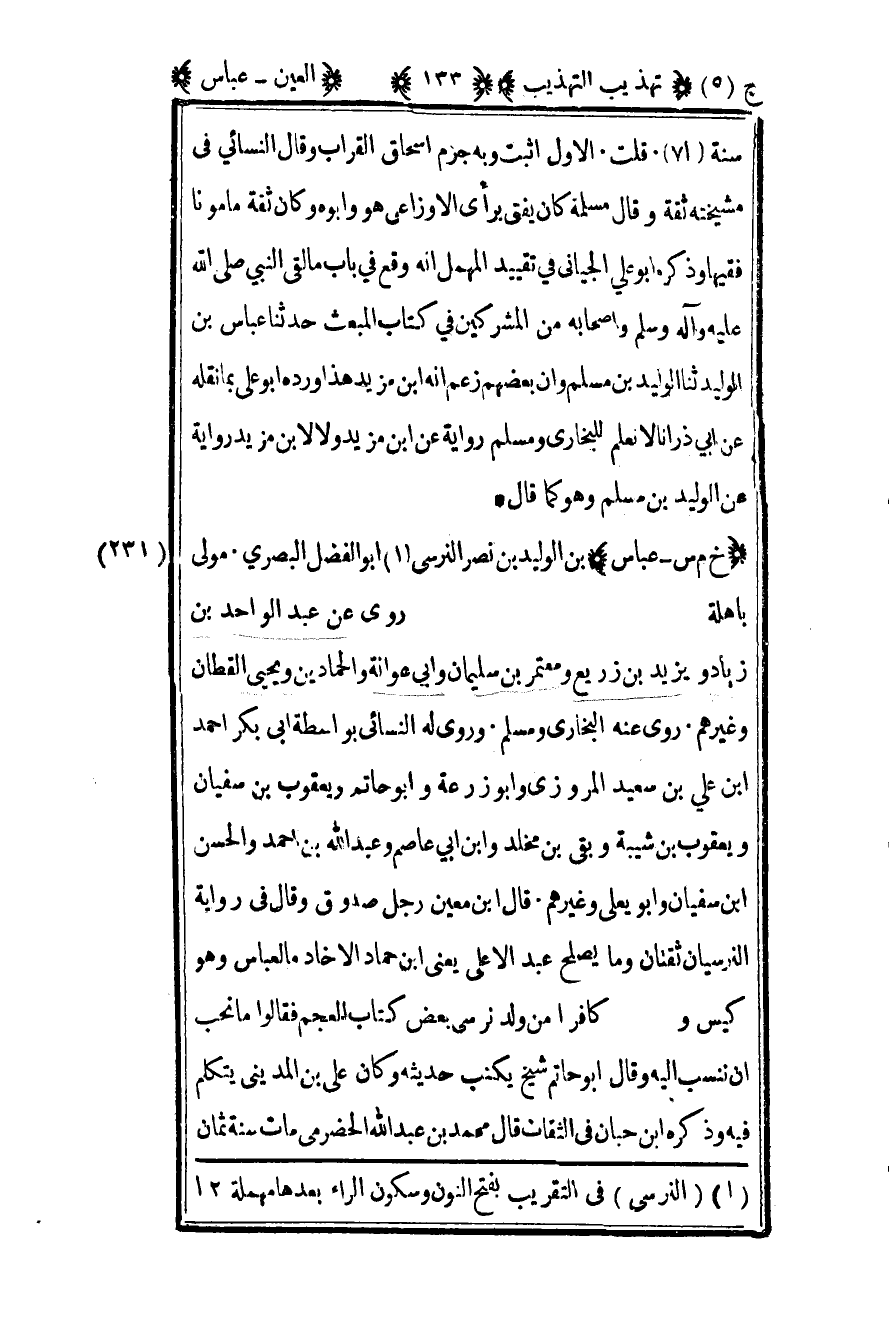 ج (٥) ﴿ تهذيب التهذيب ﴾ ﴿ ١٣٣ ﴾ ﴿ العين - عباس ﴾
سنة (٧١)٠ قلت ٠ الاول اثبت وبه جزم اسحاق القراب وقال النسائي فى
مشيخته ثقة و قال مسلمة كان يفتى برأى الاوزاعى هو وابوه وكان ثقة مامونا
فقيها وذكره ابو علي الجيانى في تقييد المهمل انه وقع في باب مالقى النبي صلى الله
عليه وآله وسلم واصحابه من المشركين في كتاب المبعث حدثنا عباس بن
الوليد ثنا الوليد بن مسلم وان بعضهم زعم انه ابن مزيد هذا ورده ابو علي بما نقله
عن ابي ذر انا لا نعلم للبخارى ومسلم رواية عن ابن مزيد ولا لابن مزيد رواية
عن الوليد بن مسلم وهو كما قال ٠
﴿ خ م س - عباس ﴾ بن الوليد بن نصر النرسى (١) ابو الفضل البصري ٠ مولى (٢٣١)
باهلة روى عن عبد الواحد بن
زياد و يزيد بن زريع و معتمر بن سليمان وابي عوانة والحمادين ويحيى القطان
وغيرهم ٠ روى عنه البخارى ومسلم ٠ وروى له النسائى بواسطة ابى بكر احمد
ابن علي بن سعيد المروزى وابو زرعة و ابو حاتم ويعقوب بن سفيان
ويعقوب بن شيبة و بقى بن مخلد وابن ابي عاصم وعبد الله بن احمد والحسن
ابن سفيان وابو يعلى وغيرهم ٠ قال ابن معين رجل صدوق وقال فى رواية
النرسيان ثقتان وما يصلح عبد الاعلى يعنى ابن حماد الاخاد م العباس وهو
كيس و كافرا من ولد نرسى بعض كتاب العجم فقالوا ما نحب
ان ننسب اليه وقال ابو حاتم شيخ يكتب حديثه وكان على بن المدينى يتكلم
فيه وذكره ابن حبان فى الثقات قال محمد بن عبد الله الحضرمى مات سنة ثمان
(١) (النرسى) فى التقريب بفتح النون وسكون الراء بعدها مهملة ١٢